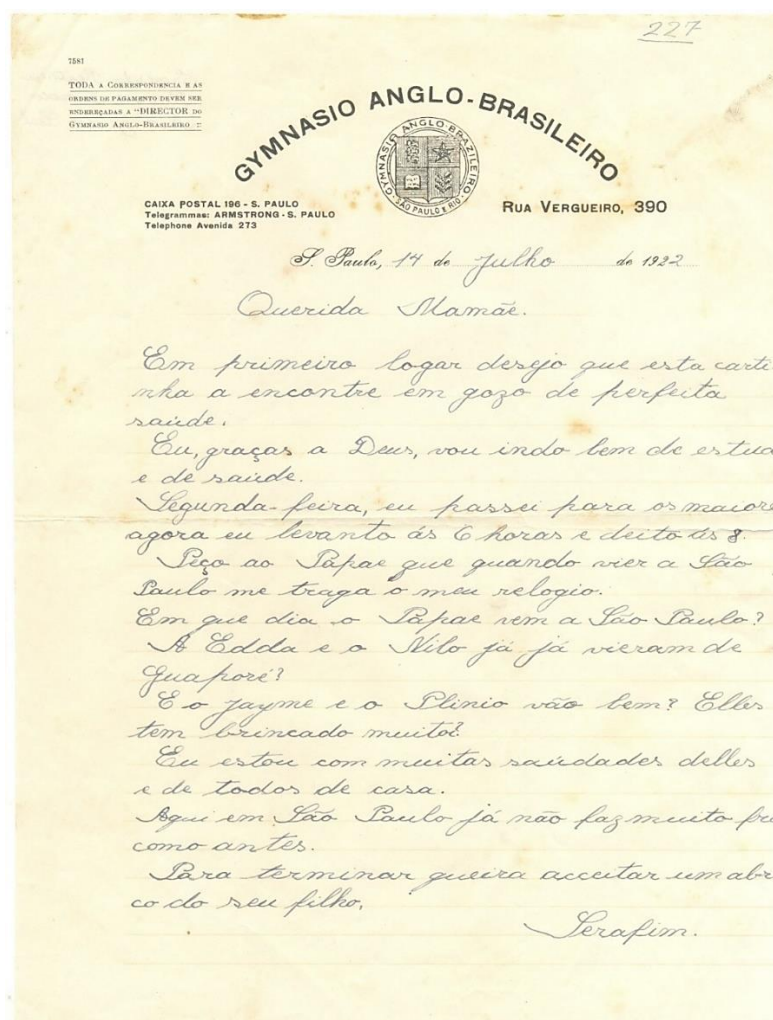 227
7581
TODA A CORRESPONDENCIA E AS
ORDENS DE PAGAMENTO DEVEM SER
ENDEREÇADAS A "DIRECTOR DO
GYMNASIO ANGLO-BRASILEIRO ::
GYMNASIO ANGLO-BRASILEIRO
GYMNASIO ANGLO-BRAZILEIRO
SÃO PAULO E RIO
CAIXA POSTAL 196 - S. PAULO
Telegrammas: ARMSTRONG - S. PAULO
Telephone Avenida 273
RUA VERGUEIRO, 390
S. Paulo, 14 de Julho de 1922
Querida Mamãe.
Em primeiro logar desejo que esta carti
nha a encontre em gozo de perfeita
saúde.
Eu, graças a Deus, vou indo bem de estud
e de saúde.
Segunda-feira, eu passei para os maiore
agora eu levanto ás 6 horas e deito ás 8.
Peço ao Papae que quando vier a São
Paulo me traga o meu relogio.
Em que dia o Papae vem a São Paulo?
A Edda e o Nilo já já vieram de
Guaporé?
E o Jayme e o Plinio vão bem? Elles
tem brincado muito?
Eu estou com muitas saúdades delles
e de todos de casa.
Aqui em São Paulo já não faz muito fri
como antes.
Para terminar queira acceitar um abr
co do seu filho.
Serafim.